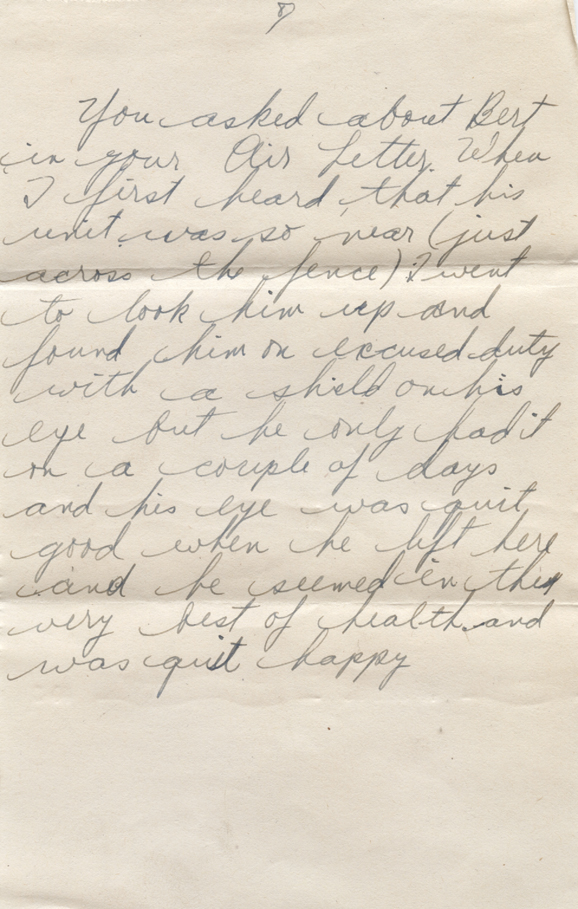 8
You asked about Bert
in your Air Letter. When
I first heard that his
unit was so near (just
across the fence) I went
to look him up and
found him on excused duty
with a shield on his
eye but he only had it
on a couple of days
and his eye was quit
good when he left here
and he seemed in the
very best of health and
was quit happy